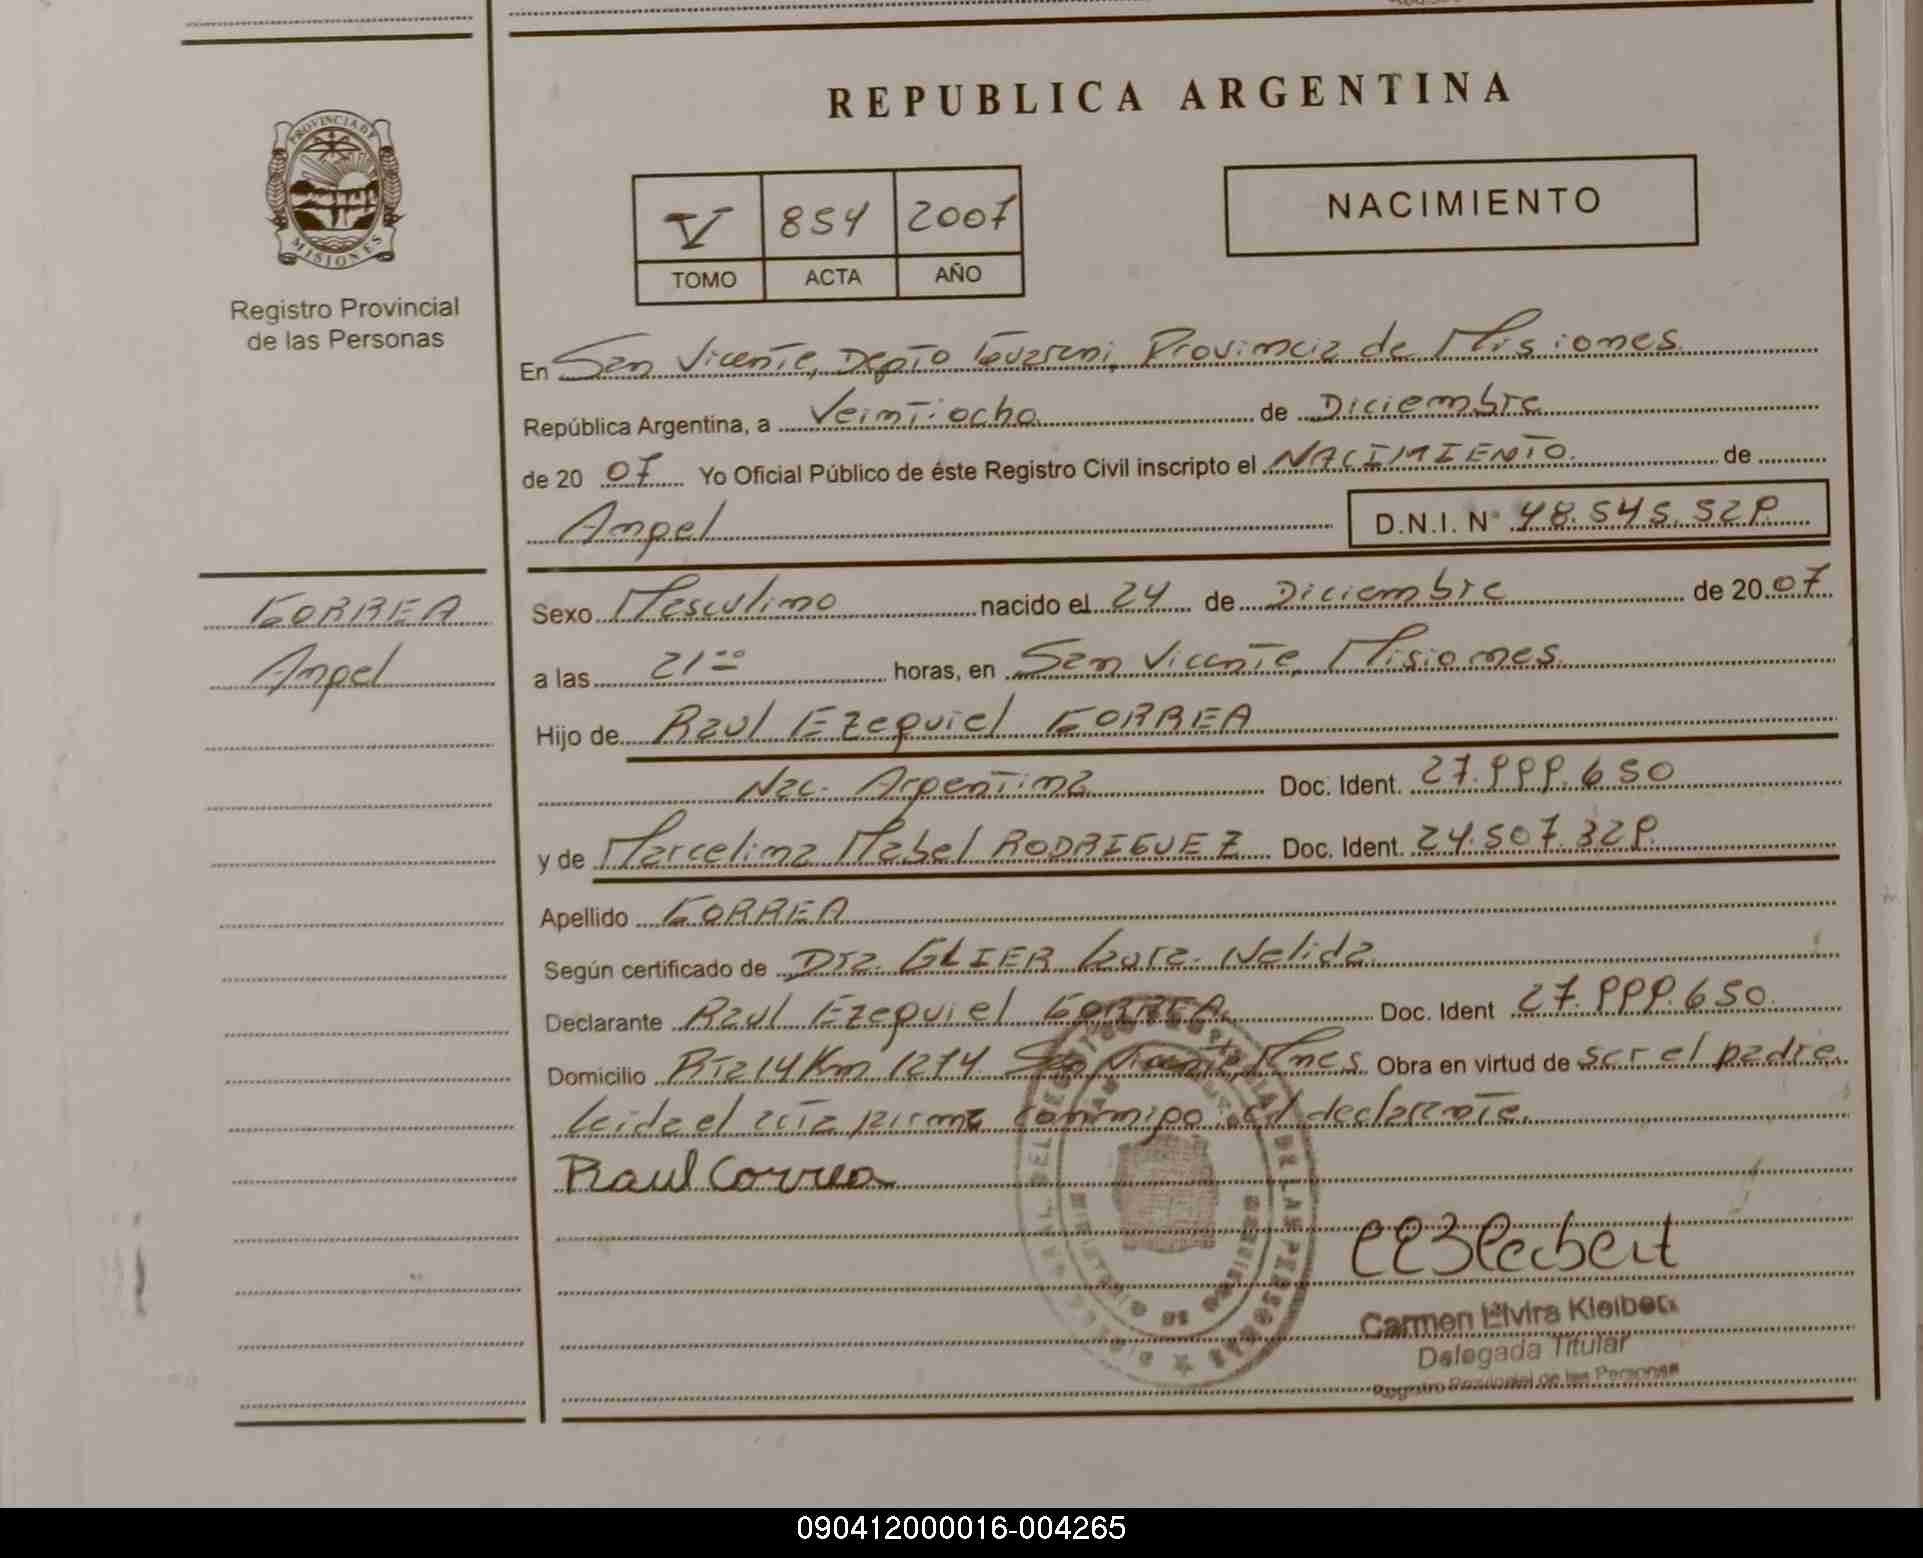 REPUBLICA ARGENTINA
PROVINCIA DE
MISIONES
Registro Provincial
de las Personas
V 854 2007
TOMO ACTA AÑO
NACIMIENTO
En San Vicente, Depto Guarani, Provincia de Misiones
República Argentina, a Veintiocho de Diciembre
de 20 07 Yo Oficial Público de éste Registro Civil inscripto el NACIMIENTO de
Angel
D.N.I. N° 48.545.529
CORREA
Angel
Sexo Masculino nacido el 24 de Diciembre de 20 07
a las 21 00 horas, en San Vicente, Misiones
Hijo de Raul Ezequiel CORREA
Nac. Argentina Doc. Ident. 27.999.650
y de Marcelina Mabel RODRIGUEZ Doc. Ident. 24.507.329.
Apellido CORREA
Según certificado de Dra. GLIER Nelida
Declarante Raul Ezequiel CORREA Doc. Ident 27.999.650
Domicilio Rta 14 Km 1274 San Vicente, Mnes Obra en virtud de ser el padre.
leida el acta firma conmigo el declarante.
Raul Correa
DE LAS PERSONAS
Carmen Elvira Kleibert
Delegada Titular
Registro Provincial de las Personas
090412000016-004265